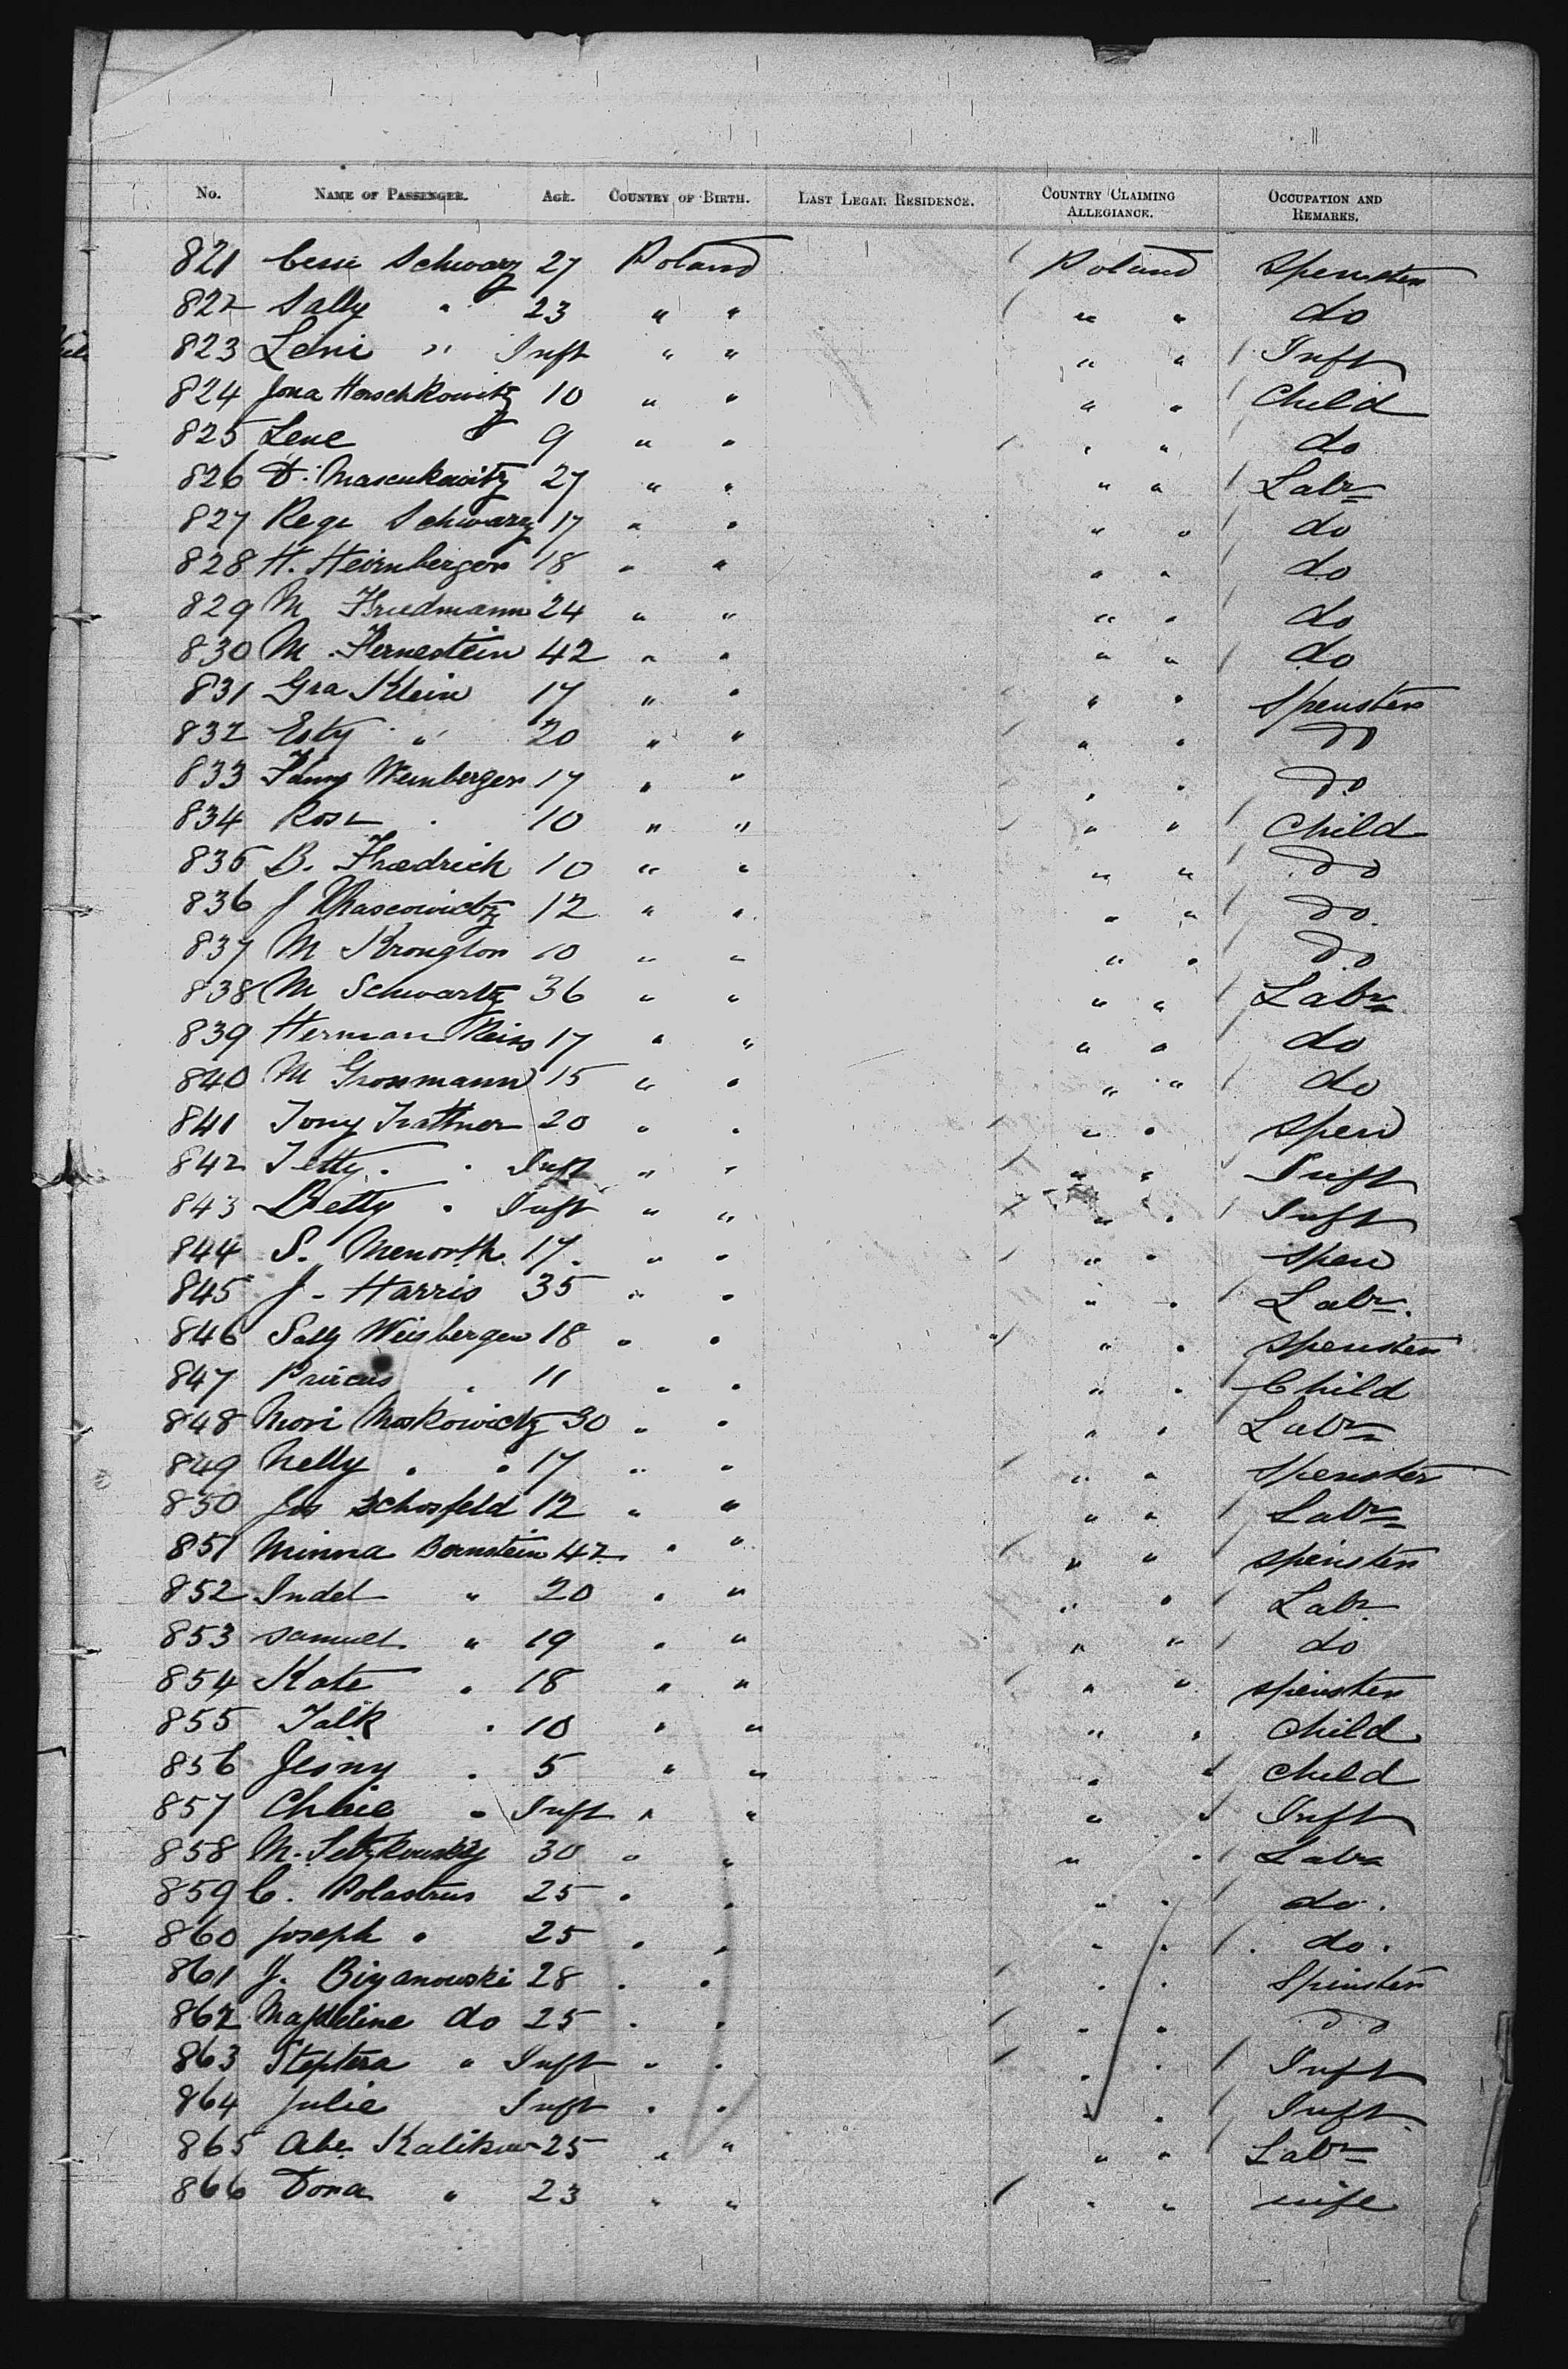 No. NAME OF PASSENGER. AGE. COUNTRY OF BIRTH. LAST LEGAL RESIDENCE. COUNTRY CLAIMING ALLEGIANCE. OCCUPATION AND REMARKS.
821 Schwarz 27 Poland Poland Spinster
822 Sally " 23 " " " " do
823 Leni " Inft " " " " Inft
824 Jona Herschkowitz 10 " " " " Child
825 Lene 9 " " " " do
826 D. 27 " " " " Labr
827 Rege Schwarz 17 " " " " do
828 H. Heirnberger 18 " " " " do
829 M Friedmann 24 " " " " do
830 M. Fernestein 42 " " " " do
831 Gra Klein 17 " " " " Spinster
832 Esty " 20 " " " " do
833 Fanny Weinberger 17 " " " " do
834 Rosa " 10 " " " " Child
835 B. Friedrich 10 " " " " do
836 J 12 " " " " do.
837 M Krongton 10 " " " " do
838 M Schwartz 36 " " " " Labr
839 Herman Reiss 17 " " " " do
840 M Grossmann 15 " " " " do
841 Tony Trattner 20 " " " " Spin
842 Jetty " Inft " " " " Inft
843 Betty " Inft " " " " Inft
844 S. Menorth 17 " " " " Spin
845 J. Harris 35 " " " " Labr.
846 Sally Weisberger 18 " " " " Spinster
847 " 11 " " " " Child
848 Mori Moskowictz 30 " " " " Labr
849 Nelly " " 17 " " " " Spinster
850 Jos Schosfeld 12 " " " " Labr
851 Minna Bernstein 42 " " " " Spinster
852 Indel " 20 " " " " Labr
853 Samuel " 19 " " " " do
854 Kate " 18 " " " " Spinster
855 Talk " 10 " " " " Child
856 Jeiny " 5 " " " " Child
857 Chaie " Inft " " " " Inft
858 M. 30 " " " " Labr
859 C. Polastrus 25 " " " " do.
860 Joseph " 25 " " " " do.
861 J. Biganowski 28 " " " " Spinster
862 Magdeline do 25 " " " " do
863 Steptera " Inft " " " " Inft
864 Julie Inft " " " " Inft
865 Abe Kalikow 25 " " " " Labr
866 Dona " 23 " " " " wife